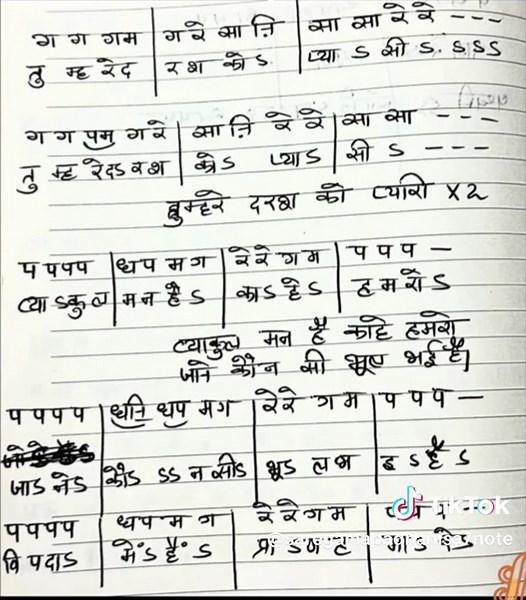 ग ग गम | ग रे सा नि़ | सा सा रे रे - - -
तु म्ह रेद | रश कोऽ | प्या ऽ सी ऽ. ऽ.ऽऽ
ग ग पम ग रे | सा नि़ रे रे | सा सा - - -
तु म्ह रेदऽ रश | कोऽ प्याऽ | सी ऽ - - -
तुम्हरे दरश को प्यासी X 2
प प प प | ध प म ग | रे रे ग म | प प प -
व्या ऽकुल | मन हैऽ | काऽ हेऽ | हमरोऽ
व्याकुल मन है काहे हमरो
जाने कौन सी भूल भई है।
प प प प | धनि धप मग | रे रे ग म | प प प -
जाऽ नेऽ | कौऽ ऽऽ न सीऽ | भूऽ लभ | इ ऽ है ऽ
प प प प | ध प म ग | रे रे ग म | प प प -
वि पदाऽ | में ऽ हैं ऽ
TikTok